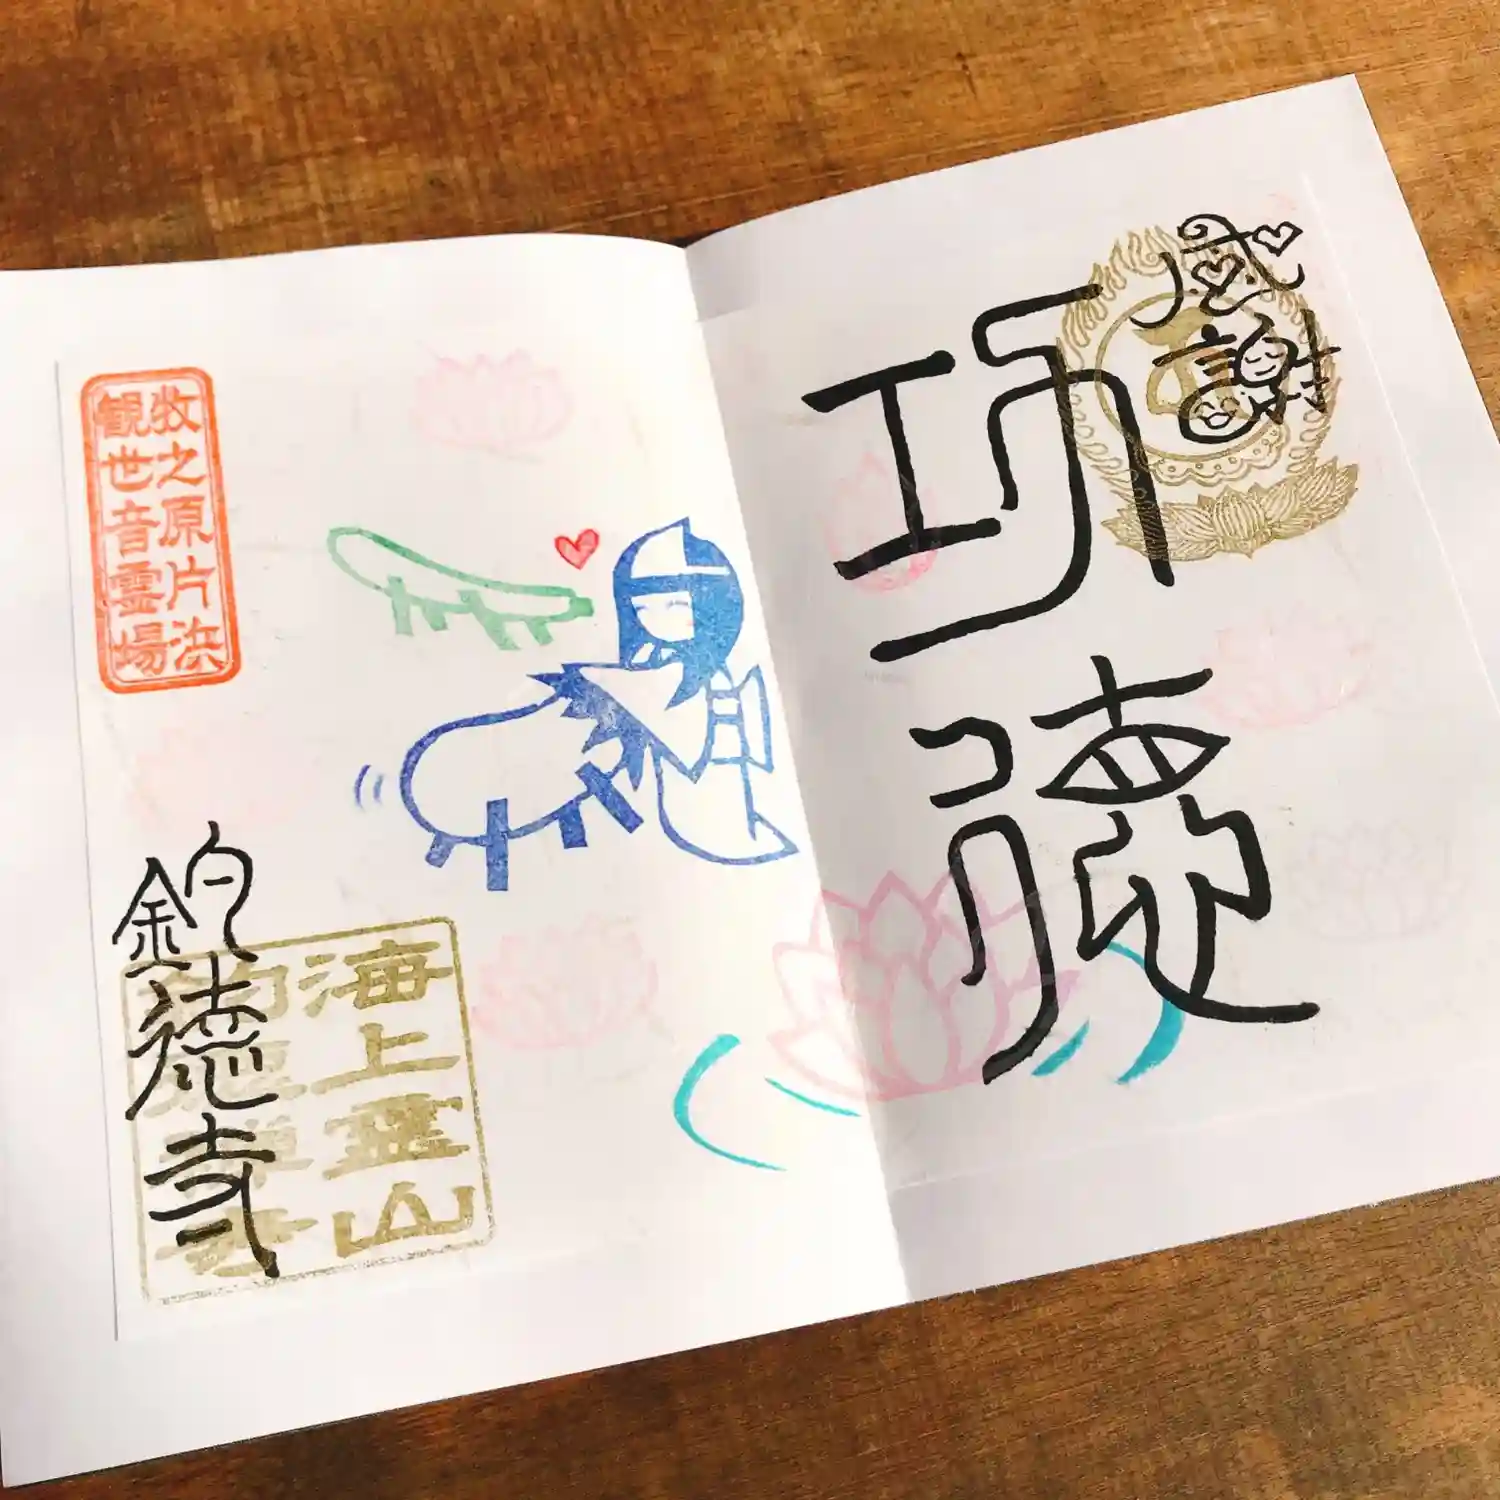 感謝
功徳
牧之原片浜
観世音霊場
海上霊山
釣徳寺